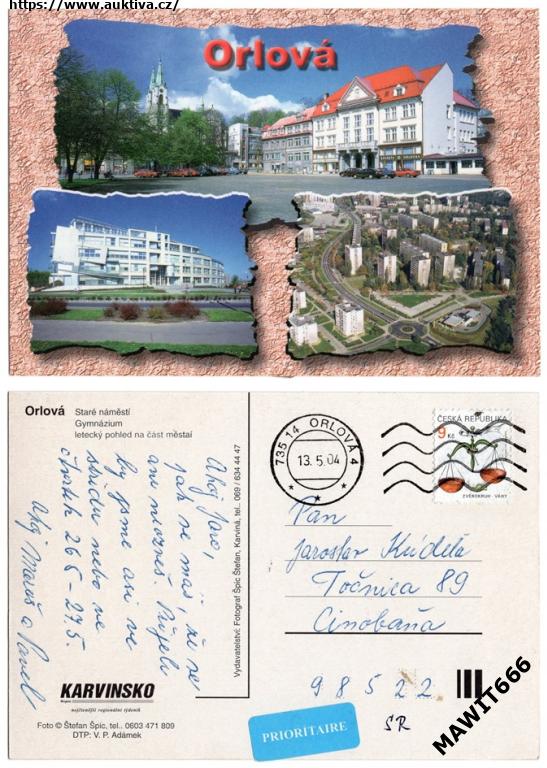 https://www.auktiva.cz/
Orlová
Orlová Staré náměstí
Gymnázium
letecký pohled na část městaí
Vydavatelství: Fotograf Špic Štefan, Karviná, tel.: 069 / 634 44 47
Ahoj Jaro,
jak se máš, že se
ani neozveš Přijeli
by jsme asi ve
středu nebo ve
čtvrtek 26.5-27.5.
Ahoj a Pavel
Region KARVINSKO
nejčtenější regionální týdeník
Foto © Štefan Špic, tel.. 0603 471 809
DTP: V. P. Adámek
735 14 ORLOVÁ 4
13.5.04
ČESKÁ REPUBLIKA
9 Kč
ZVĚROKRUH - VÁHY
Pan
Jaroslav
Točnica 89
Cinobaňa
98522
SR
PRIORITAIRE
MAWIT666